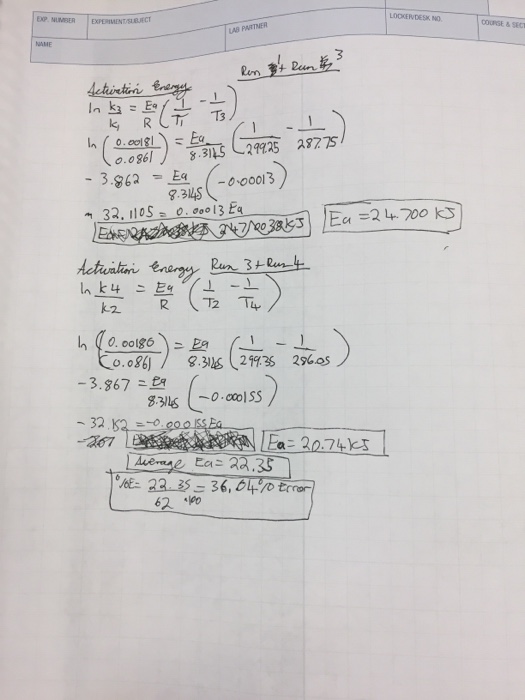 EXP. NUMBER EXPERIMENT/SUBJECT LAB PARTNER LOCKER/DESK NO. COURSE & SECT
NAME
Run 1 + Run 3
Activation Energy
ln k3/k1 = Ea/R (1/T1 - 1/T3)
ln (0.00181/0.0861) = Ea/8.3145 (1/299.25 - 1/287.75)
- 3.862 = Ea/8.3145 (-0.00013)
- 32.1105 = 0.00013 Ea
Ea = 24.700 KJ
Activation Energy Run 3 + Run 4
ln k4/k2 = Ea/R (1/T2 - 1/T4)
ln (0.00180/0.0861) = Ea/8.3145 (1/299.35 - 1/286.05)
-3.867 = Ea/8.3145 (-0.000155)
- 32.152 = -0.000155 Ea
Ea = 20.74 kJ
Average Ea = 22.35
%E = 22.35/62 •100 = 36.04% Error